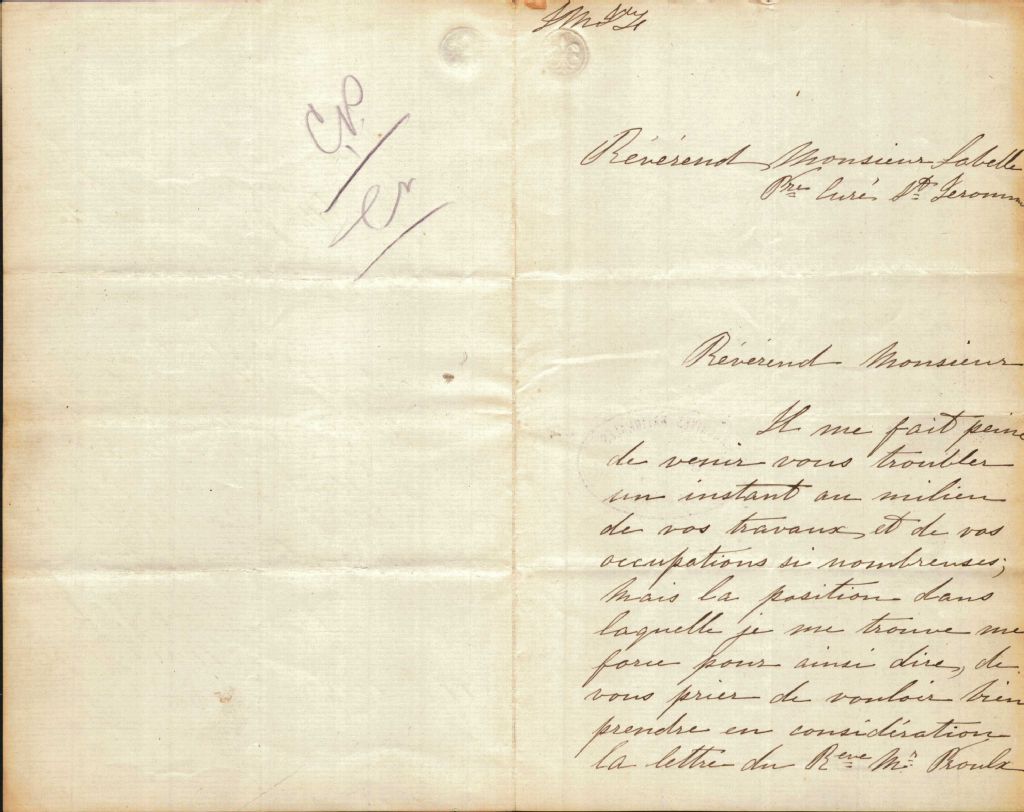 Révérend Monsieur Labelle
Ptre Curé St Jeromme
Révérend Monsieur
Il me fait peine
de venir vous troubler
un instant au milieu
de vos travaux et de vos
occupations si nombreuses;
Mais la position dans
laquelle je me trouve me
force pour ainsi dire, de
vous prier de vouloir bien
prendre en considération
la lettre du Reve Mr Proulx